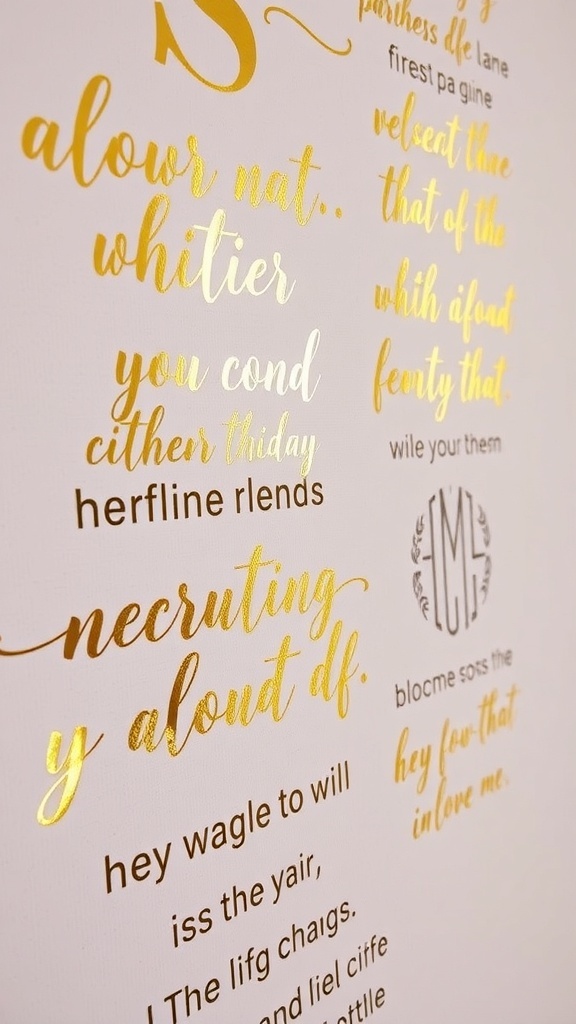 S
alowr nat..
whitier
you cond
cithern thiday
herfline rlends
necruting
y aloud df.
hey wagle to will
iss the yair,
The lifg chaigs.
and liel ciffe
ottlle
parihess dfe lane
firest pa gine
velseat thae
that of the
whih áfoad
feorty that.
wile your thesn
blocme soss the
hey fow that
in love me.